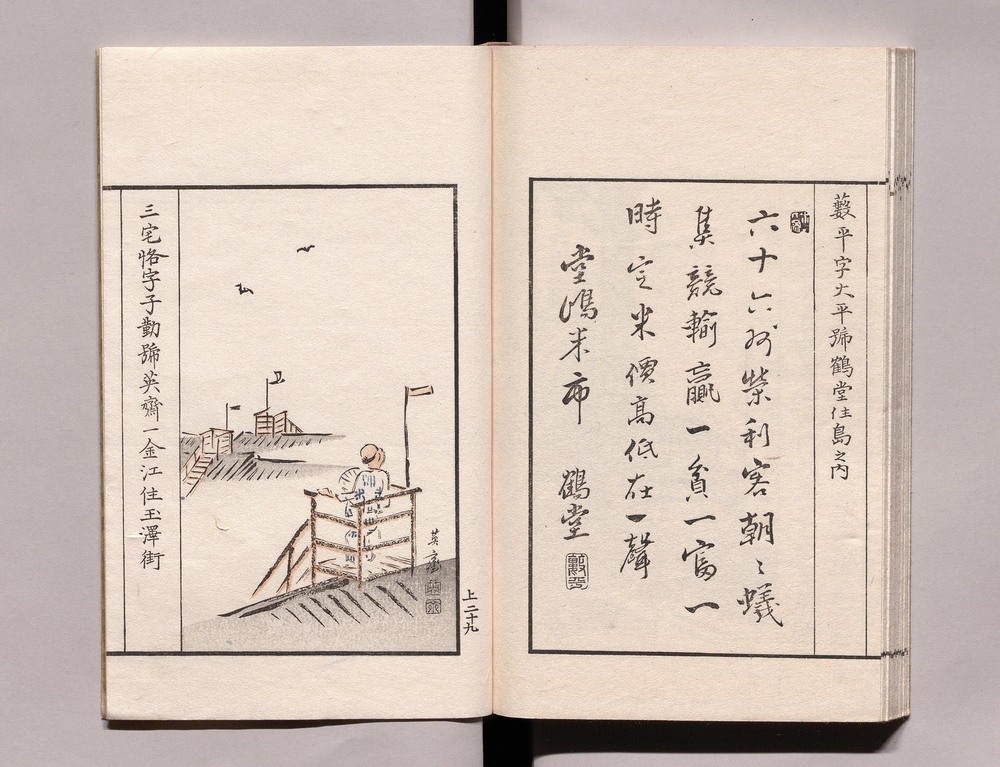 藪平字大平號鶴堂住島之内
六十六州榮利客朝〻蟻
集競輸贏一貧一富一
時定米價高低在一聲
堂嶋米市　鶴堂
上二十九
英齋
三宅恪字子勤號英齋一金江住玉澤街